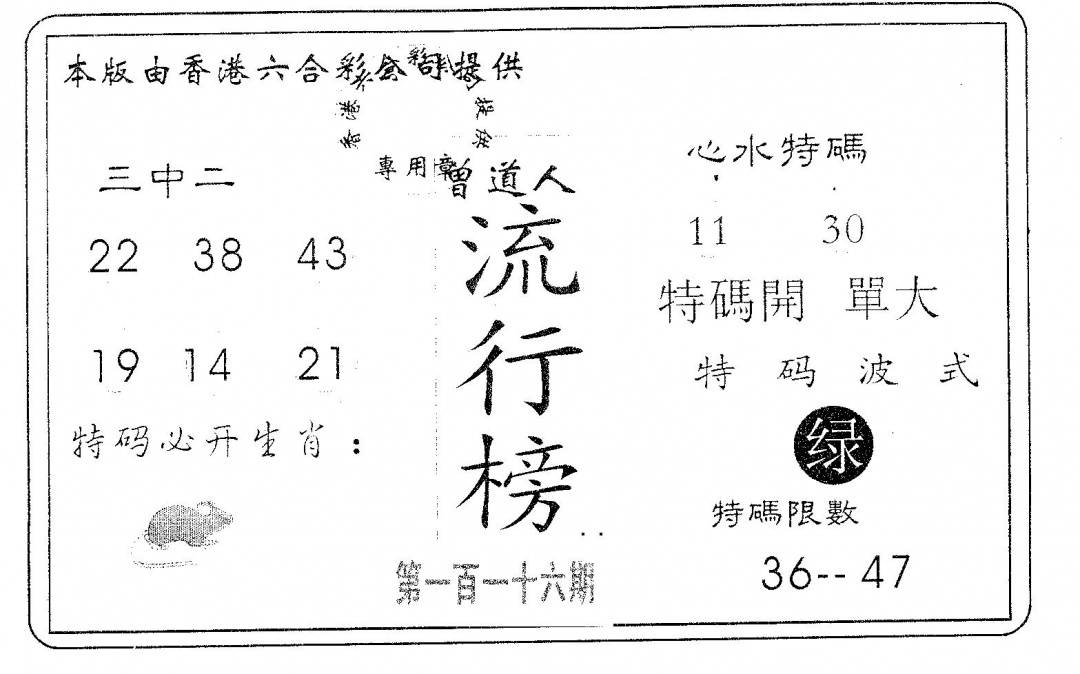 本版由香港六合彩公司提供
香港六合彩公司提供
專用章
三中二
22 38 43
19 14 21
特码必开生肖：
曾道人
流行榜
第一百一十六期
心水特碼
11 30
特碼開 單大
特码波式
绿
特碼限數
36-- 47